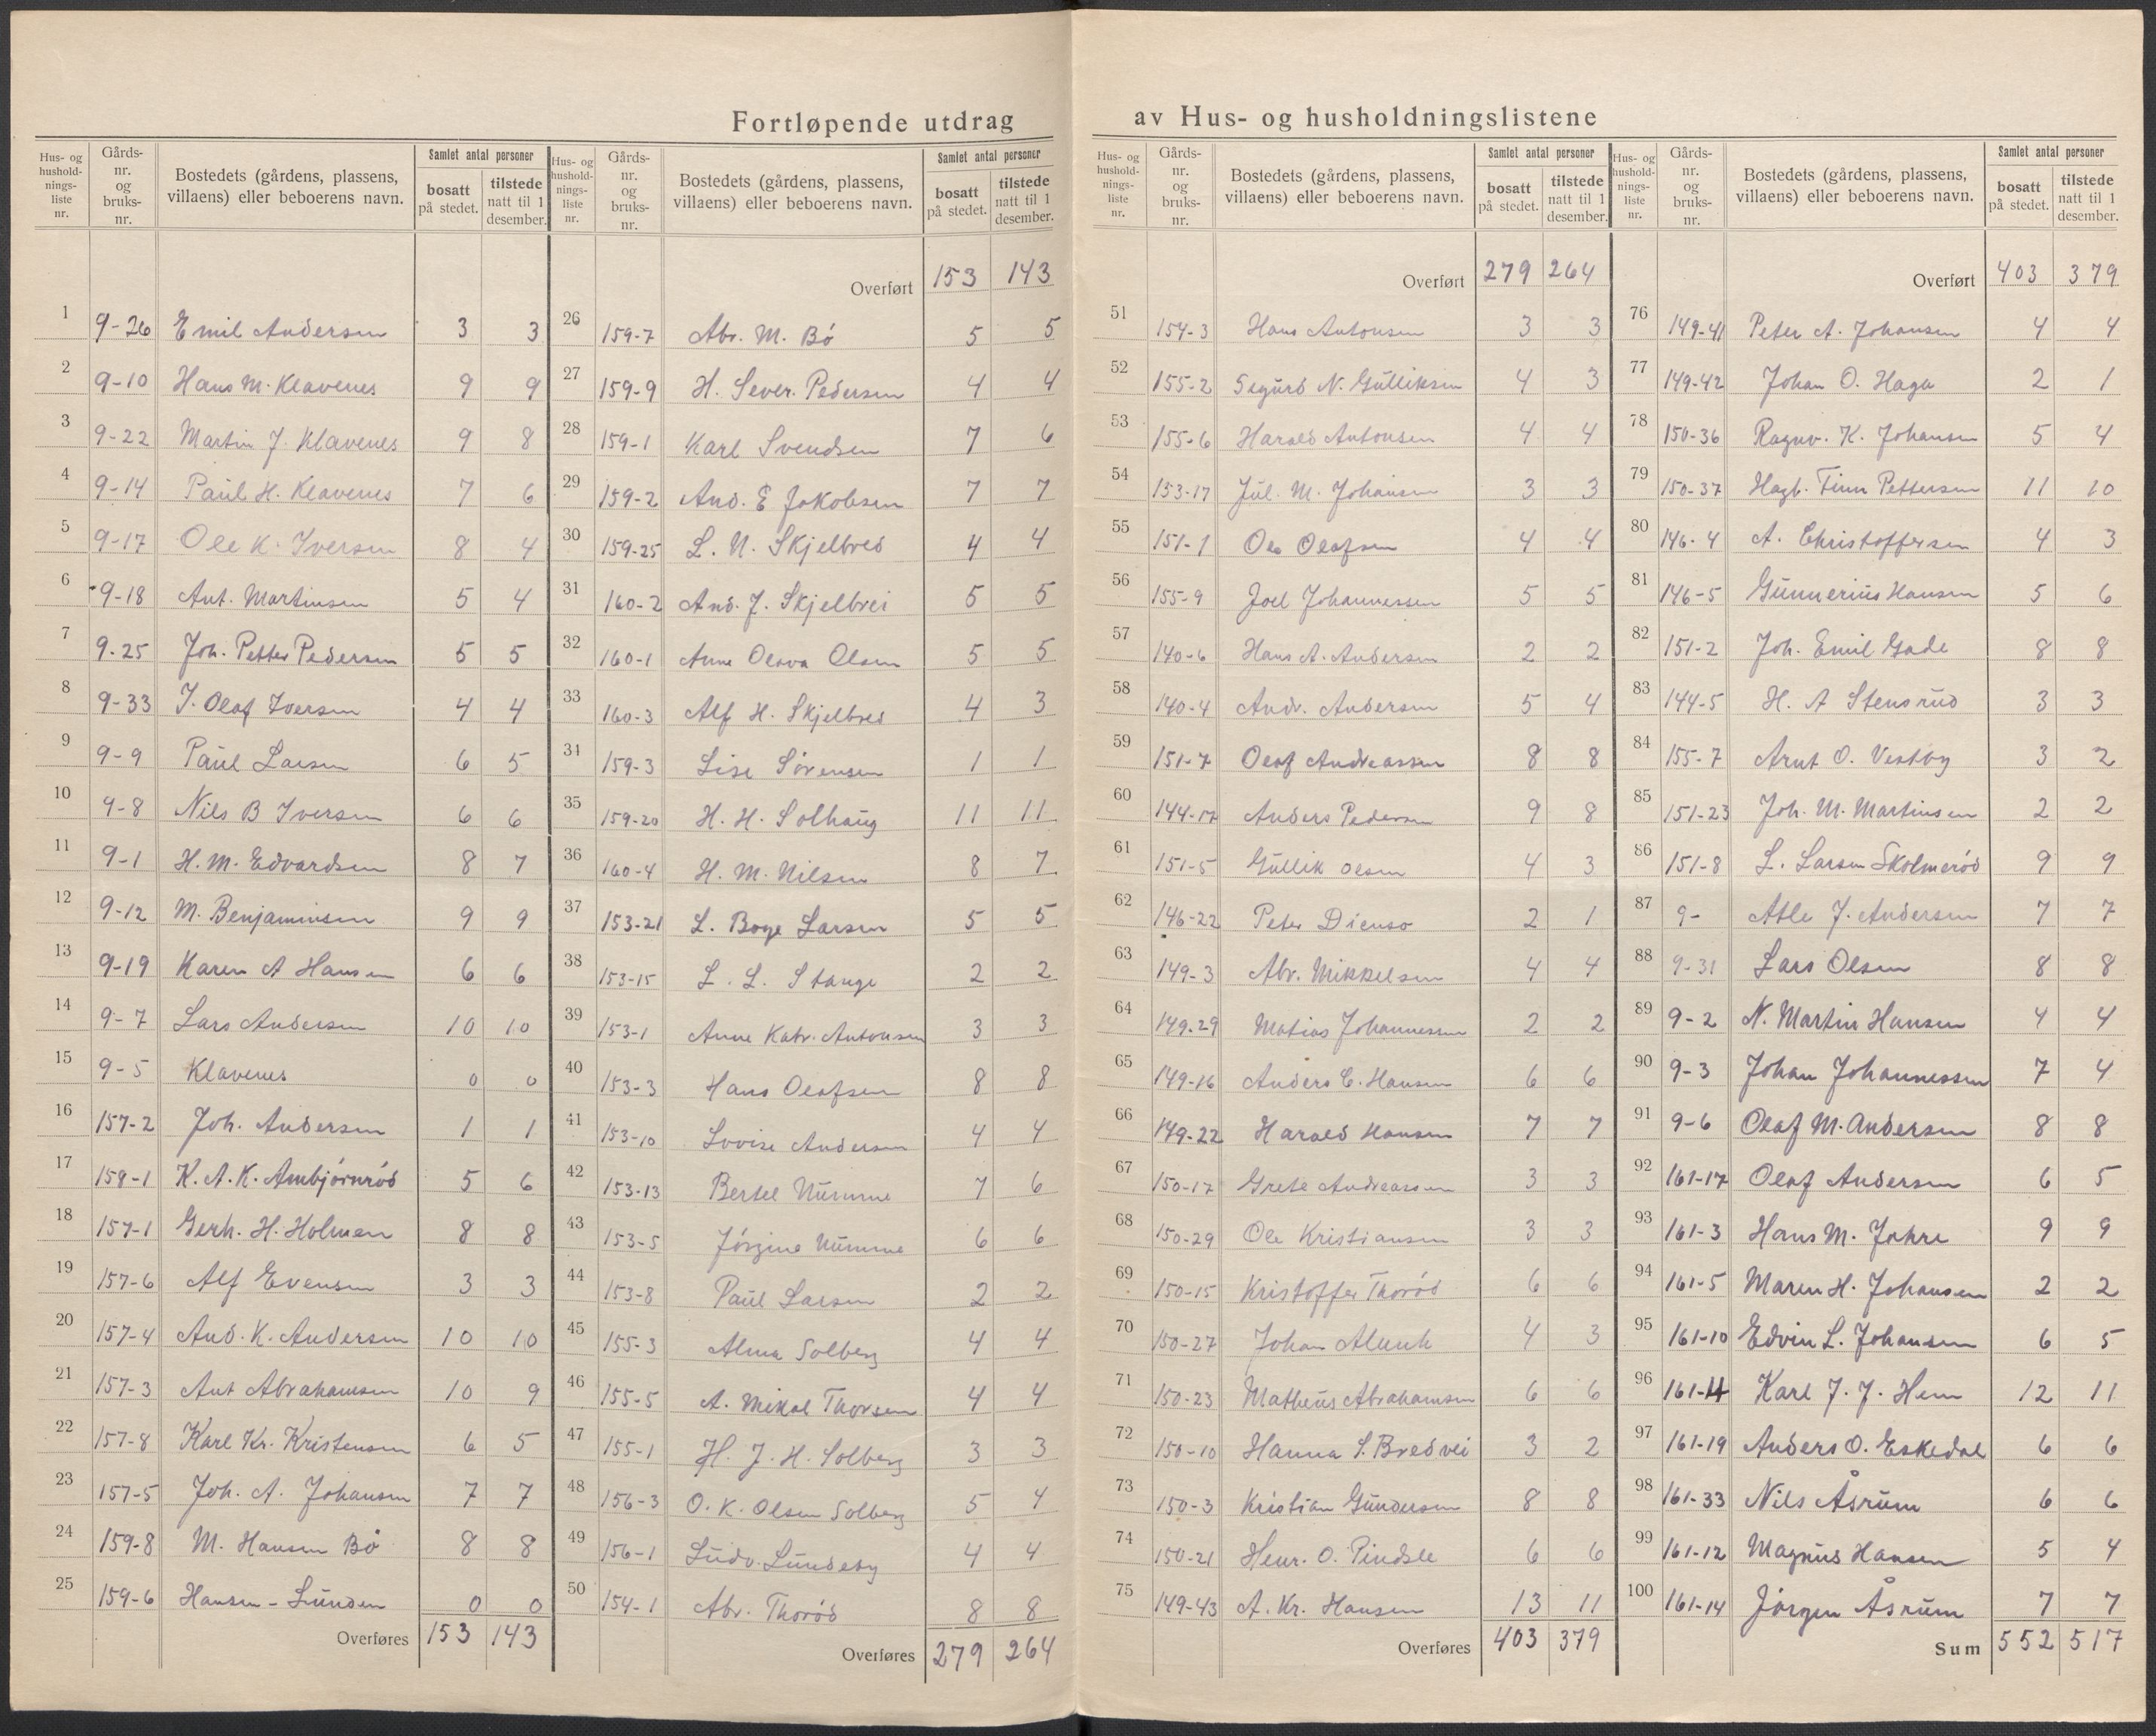 Fortløpende utdrag av Hus- og husholdningslistene
Hus- og husholdnings-liste nr. | Gårds-nr. og bruks-nr. | Bostedets (gårdens, plassens, villaens) eller beboerens navn. | Samlet antal personer | bosatt på stedet. | tilstede natt til 1 desember.
1 9-26 Emil Andersen 3 3
2 9-10 Hans M. Klavenes 9 9
3 9-22 Martin J. Klavenes 9 8
4 9-14 Paul H. Klavenes 7 6
5 9-17 Ole K. Iversen 8 4
6 9-18 Ant. Martinsen 5 4
7 9-25 Joh. Petter Pedersen 5 5
8 9-33 I. Olaf Iversen 4 4
9 9-9 Paul Larsen 6 5
10 9-8 Nils B Iversen 6 6
11 9-1 H. M. Edvardsen 8 7
12 9-12 M. Benjaminsen 9 9
13 9-19 Karen A Hansen 6 6
14 9-7 Lars Andersen 10 10
15 9-5 Klavenes 0 0
16 157-2 Joh. Andersen 1 1
17 158-1 K. A. K. Ambjørnrød 5 6
18 157-1 Gerh. H. Holman 8 8
19 157-6 Alf Evensen 3 3
20 157-4 And. K. Andersen 10 10
21 157-3 Ant Abrahamsen 10 9
22 157-8 Karl Kr. Kristensen 6 5
23 157-5 Joh. A. Johansen 7 7
24 159-8 M. Hansen Bø 8 8
25 159-6 Hansen - Lunden 0 0
Overføres 153 143
Hus- og husholdnings-liste nr. | Gårds-nr. og bruks-nr. | Bostedets (gårdens, plassens, villaens) eller beboerens navn. | Samlet antal personer | bosatt på stedet. | tilstede natt til 1 desember.
Overført 153 143
26 159-7 Abr. M. Bø 5 5
27 159-9 H. Sever. Pedersen 4 4
28 159-1 Karl Svendsen 7 6
29 159-2 And. E Jakobsen 7 7
30 159-25 L. N. Skjelbred 4 4
31 160-2 And. J. Skjelbrei 5 5
32 160-1 Anne Olova Olsen 5 5
33 160-3 Alf H. Skjelbred 4 3
34 159-3 Lise Sørensen 1 1
35 159-20 H. H. Solhaug 11 11
36 160-4 H. M. Nilsen 8 7
37 153-21 L. Boye Larsen 5 5
38 153-15 L. L. Stange 2 2
39 153-1 Anne Katr. Antonsen 3 3
40 153-3 Hans Olafsen 8 8
41 153-10 Lovise Andersen 4 4
42 153-13 Bertel Numme 7 6
43 153-5 Jørgine Numme 6 6
44 153-8 Paul Larsen 2 2
45 155-3 Alma Solberg 4 4
46 155-5 A. Mikal Thorsen 4 4
47 155-1 H. J. H. Solberg 3 3
48 156-3 O. K. Olsen Solberg 5 4
49 156-1 Ludv. Lundeby 4 4
50 154-1 Abr. Thorød 8 8
Overføres 279 264
Hus- og husholdnings-liste nr. | Gårds-nr. og bruks-nr. | Bostedets (gårdens, plassens, villaens) eller beboerens navn. | Samlet antal personer | bosatt på stedet. | tilstede natt til 1 desember.
Overført 279 264
51 154-3 Hans Antonsen 3 3
52 155-2 Segurd N. Gulliksen 4 3
53 155-6 Harald Antonsen 4 4
54 153-17 Jul. M. Johansen 3 3
55 151-1 Ole Olafsen 4 4
56 155-9 Joel Johannessen 5 5
57 140-6 Hans A. Andersen 2 2
58 140-4 Andr. Andersen 5 4
59 151-7 Olaf Andreassen 8 8
60 144-17 Anders Pedersen 9 8
61 151-5 Gullik Olsen 4 3
62 146-22 Peter Dienso 2 1
63 149-3 Abr. Mikkelsen 4 4
64 149-29 Matias Johannessen 2 2
65 149-16 Anders C. Hansen 6 6
66 149-22 Harald Hansen 7 7
67 150-17 Grete Andreassen 3 3
68 150-29 Ole Kristiansen 3 3
69 150-15 Kristoffer Thorød 6 6
70 150-27 Johan 4 3
71 150-23 Matheus Abrahamsen 6 6
72 150-10 Hanna S. Bredvei 3 2
73 150-3 Kristian Gundersen 8 8
74 150-21 Henr. O. Pindsle 6 6
75 149-43 A. Kr. Hansen 13 11
Overføres 403 379
Hus- og husholdnings-liste nr. | Gårds-nr. og bruks-nr. | Bostedets (gårdens, plassens, villaens) eller beboerens navn. | Samlet antal personer | bosatt på stedet. | tilstede natt til 1 desember.
Overført 403 379
76 149-41 Peter A. Johansen 4 4
77 149-42 Johan O. Haga 2 1
78 150-36 Ragnv. K. Johansen 5 4
79 150-37 Hagb. Finn Pettersen 11 10
80 146-4 A. Christoffersen 4 3
81 146-5 Gunnerius Hansen 5 6
82 151-2 Joh. Emil Gade 8 8
83 144-5 H. A Stensrud 3 3
84 155-7 Arnt O. Vestby 3 2
85 151-23 Joh. M. Martinsen 2 2
86 151-8 L. Larsen Skolmerød 9 9
87 9- Atle J. Andersen 7 7
88 9-31 Lars Olsen 8 8
89 9-2 N. Martin Hansen 4 4
90 9-3 Johan Johannessen 7 4
91 9-6 Olaf M. Andersen 8 8
92 161-17 Olaf Andersen 6 5
93 161-3 Hans M. Johre 9 9
94 161-5 Maren H. Johansen 2 2
95 161-10 Edvin L. Johansen 6 5
96 161-4 Karl J. J. Hem 12 11
97 161-19 Anders O. Eskedal 6 6
98 161-33 Nils Åsrum 6 6
99 161-12 Magnus Hansen 5 4
100 161-14 Jørgen Åsrum 7 7
Sum 552 517